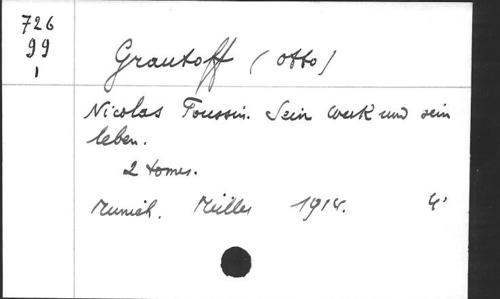 726
99
1
Grautoff (Otto)
Nicolas Poussin. Sein Werk und sein
leben.
2 tomes.
Munich. Müller 1914. 4°